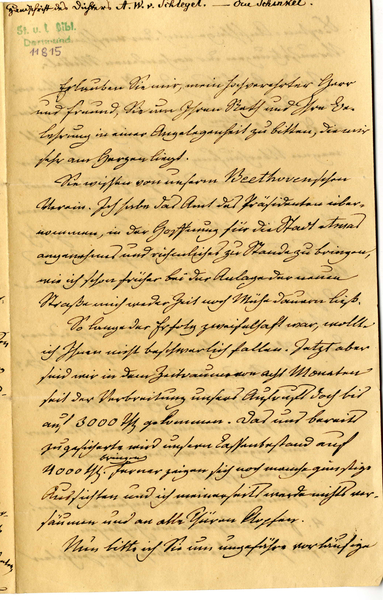 Handschrift des Dichters A. W. v. Schlegel. — An Schinkel.
St. u. L. Bibl.
Dortmund.
11815
Erlauben Sie mir, mein hochverehrter Herr
und Freund, Sie um Ihren Rath und Ihre Be-
lehrung in einer Angelegenheit zu bitten, die mir
sehr am Herzen liegt.
Sie wissen von unserm Beethovenschen
Verein. Ich habe das Amt des Präsidenten über-
nommen, in der Hoffnung für die Stadt etwas
angenehmes und rühmliches zu Stande zu bringen,
wie ich schon früher bei der Anlage der neuen
Straße mich weder Zeit noch Mühe dauern ließ.
So lange der Erfolg zweifelhaft war, wollte
ich Ihnen nicht beschwerlich fallen. Jetzt aber
sind wir in dem Zeitraume von acht Monaten
seit der Verbreitung unsers Aufrufs doch bis
auf 3000 gekommen. Das uns bereits
zugesicherte wird unsern Cassenbestand auf
4000 bringen. Ferner zeigen sich noch manche günstige
Aussichten und ich meinerseits werde nichts ver-
säumen und an alle Thüren klopfen.
Nun bitte ich Sie um ungefähre vorläufige